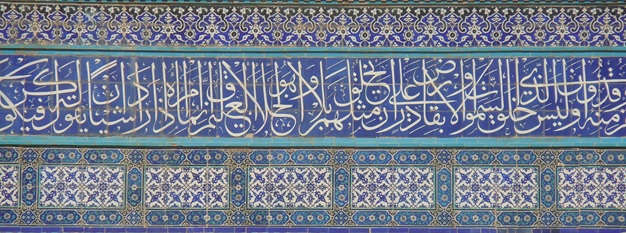 منه توقدون اوليس الذي خلق السموات والارض بقادر على ان يخلق مثلهم بلى وهو الخلاق العليم انما امره اذا اراد شيئا ان يقول له كن فيكون